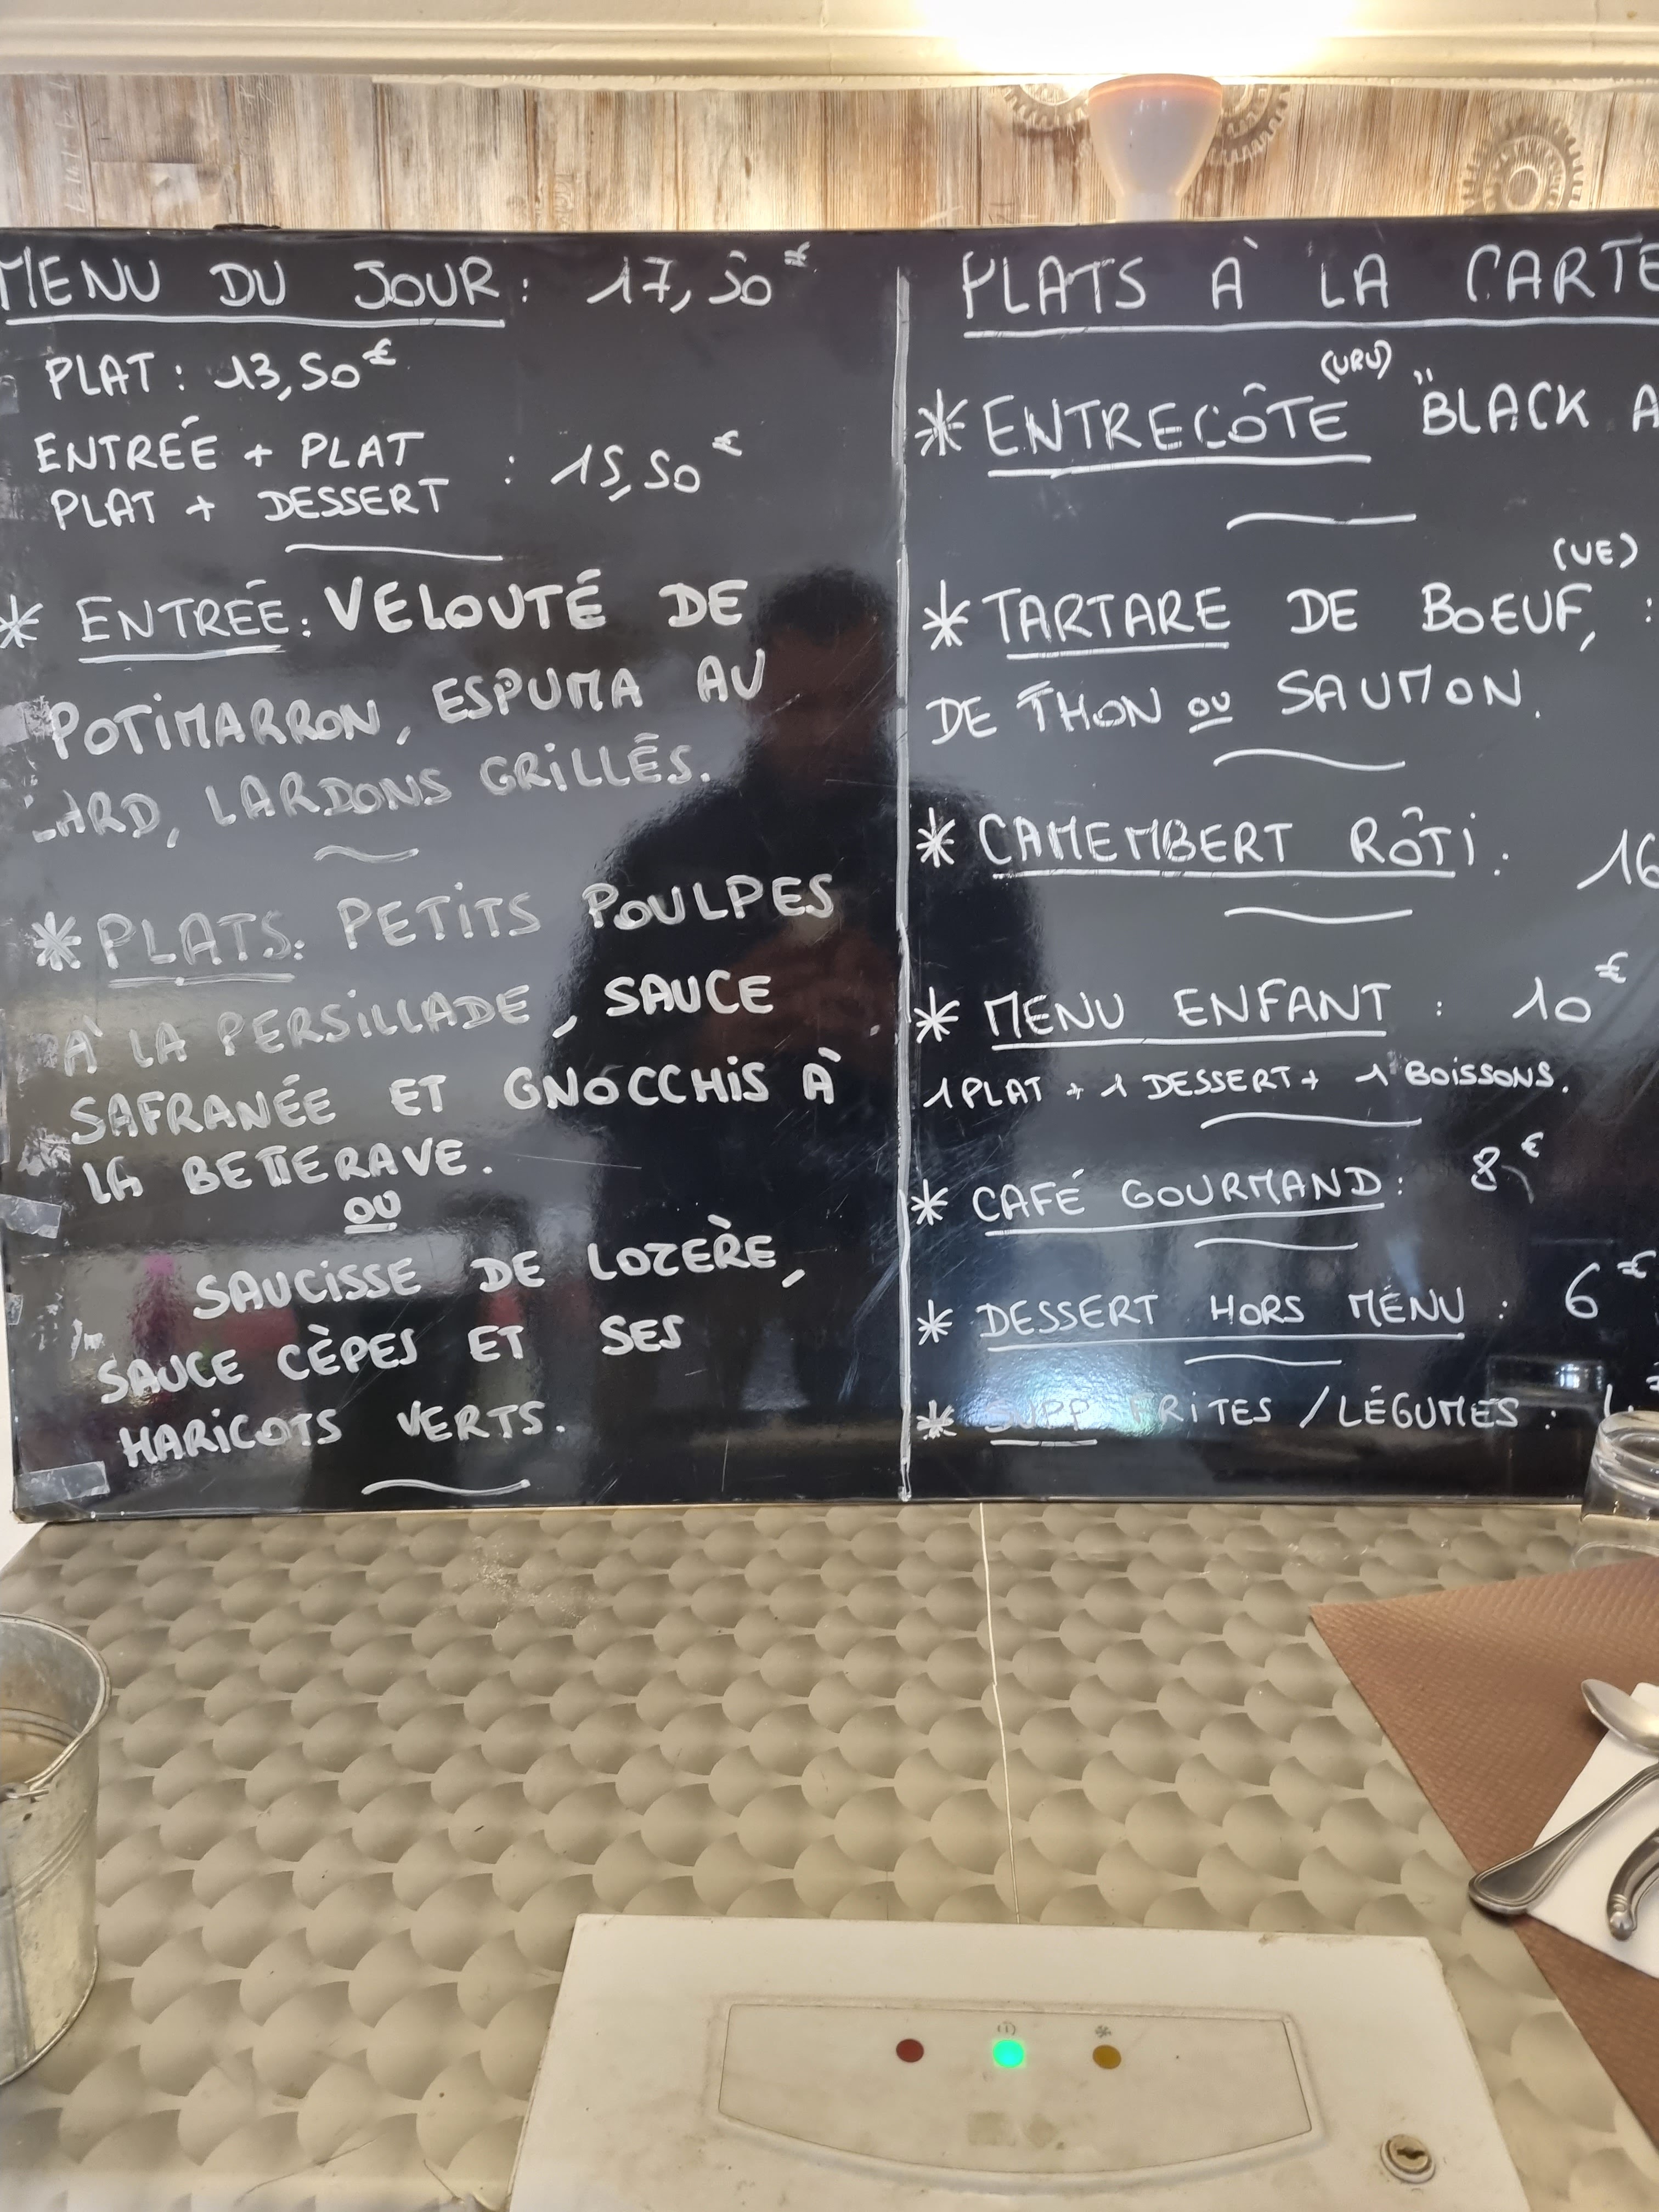 MENU DU JOUR: 17,50€
PLAT: 13,50€
ENTRÉE + PLAT
PLAT + DESSERT : 15,50€
* ENTRÉE: VELOUTÉ DE
POTIMARRON, ESPUMA AU
LARD, LARDONS GRILLÉS.
* PLATS: PETITS POULPES
À LA PERSILLADE, SAUCE
SAFRANÉE ET GNOCCHIS À
LA BETTERAVE.
OU
SAUCISSE DE LOZÈRE,
SAUCE CÈPES ET SES
HARICOTS VERTS.
PLATS À LA CARTE
(URU)
* ENTRECÔTE "BLACK A
(UE)
* TARTARE DE BOEUF, :
DE THON OU SAUMON.
* CAMEMBERT RÔTI: 16
* MENU ENFANT : 10€
1 PLAT + 1 DESSERT + 1 BOISSONS.
* CAFÉ GOURMAND: 8€
* DESSERT HORS MENU : 6€
* SUPP FRITES / LÉGUMES :